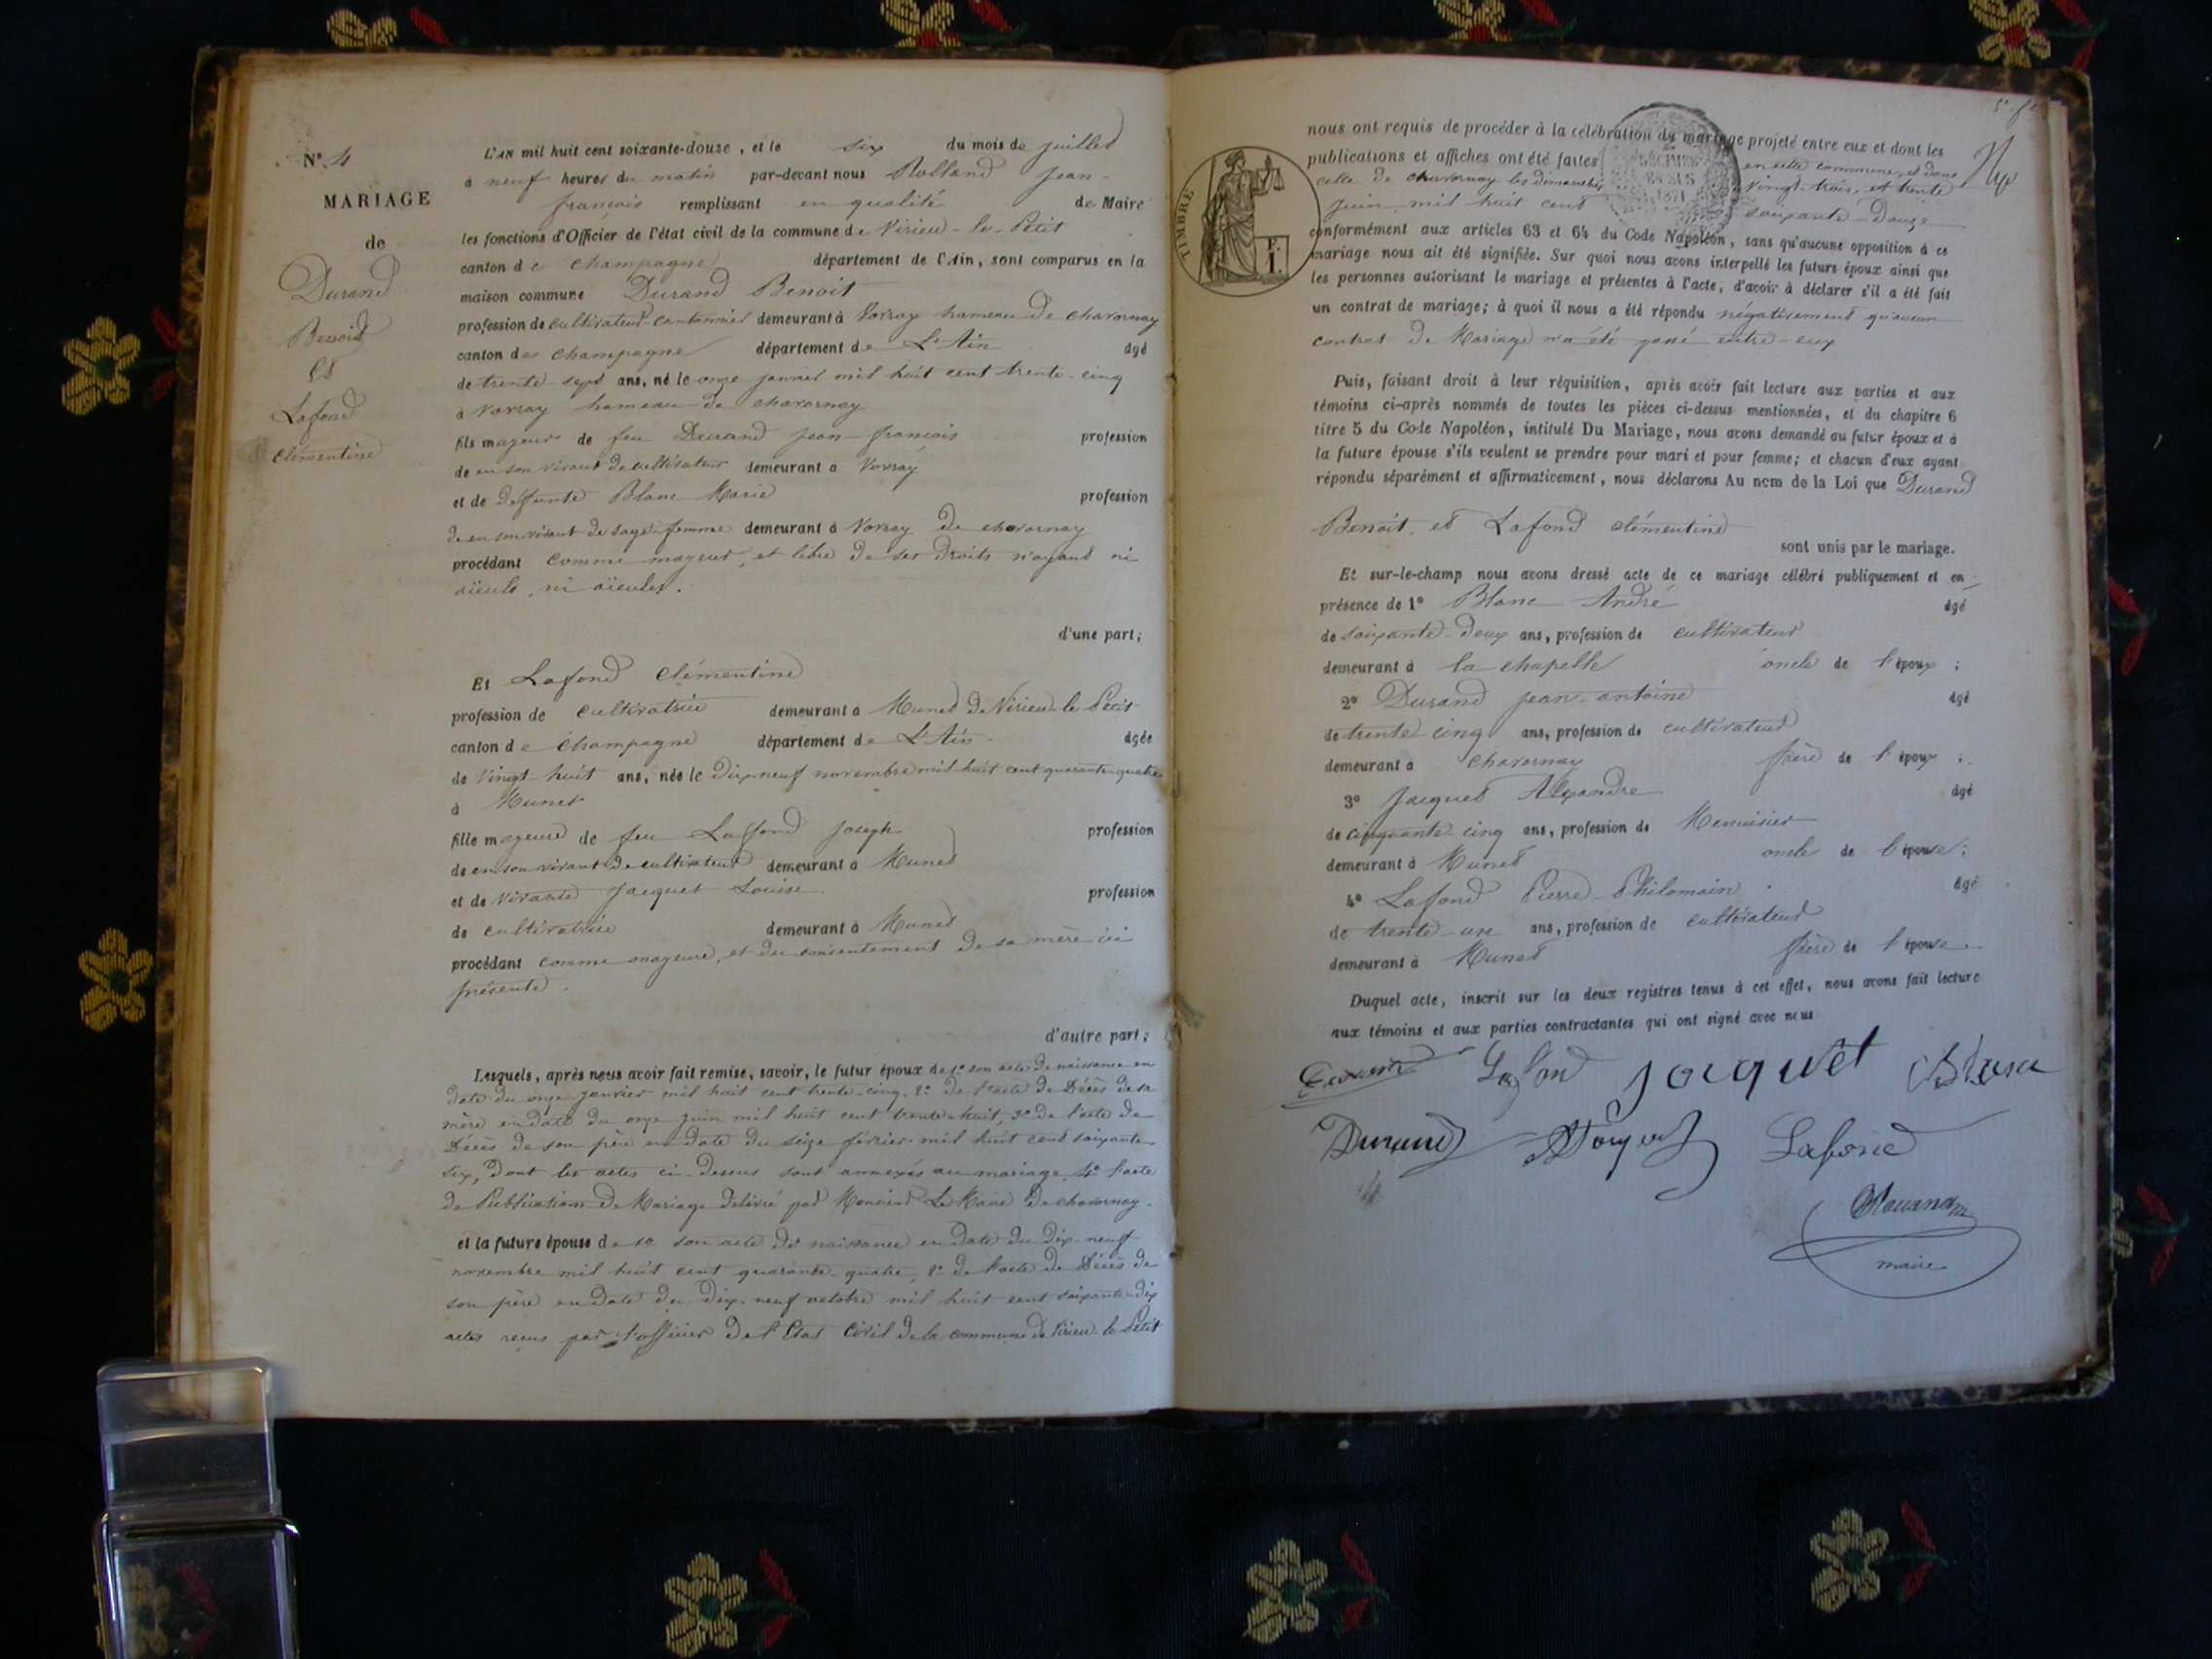 N° 4
MARIAGE
de
Durand
Benoit
et
Lafond
Clémentine
L'AN mil huit cent soixante-douze, et le six du mois de juillet
à neuf heures du matin par-devant nous Rolland jean-
françois remplissant en qualité de Maire
les fonctions d'Officier de l'état civil de la commune de Virieu-le-Petit
canton de champagne département de l'Ain, sont comparus en la
maison commune Durand Benoit
profession de cultivateur-cantonnier demeurant à Vorray hameau de chavornay
canton de champagne département de L'Ain âgé
de trente-sept ans, né le onze janvier mil huit cent trente-cinq
à Vorray hameau de chavornay
fils majeur de feu Durand jean-françois profession
de en son vivant de cultivateur demeurant à Vorray
et de deffunte Blanc Marie profession
de en son vivant de sage-femme demeurant à Vorray de chavornay
procédant comme majeur, et libre de ses droits n'ayant ni
aïeuls, ni aïeules.
d'une part;
Et Lafond clémentine
profession de cultivatrice demeurant à Munet de Virieu-le-Petit
canton de champagne département de L'Ain. âgée
de vingt-huit ans, née le dix-neuf novembre mil-huit cent quarante-quatre
à Munet
fille majeure de feu Laffond joseph profession
de en son vivant de cultivateur demeurant à Munet
et de vivante jacquet Louise profession
de cultivatrice demeurant à Munet
procédant comme majeure, et du consentement de sa mère ici
présente.
d'autre part;
Lesquels, après nous avoir fait remise, savoir, le futur époux de 1° son acte de naissance en
date du onze janvier mil huit cent trente-cinq. 2° de l'acte de Décès de sa
mère en date du onze juin mil huit cent trente-huit, 3° de l'acte de
Décès de son père en date du seize février mil huit cent soixante
six, dont les actes ci-dessus sont annexés au mariage, 4° l'acte
de Publications de Mariage délivré par Monsieur Le Maire de chavornay.
et la future épouse de 1° son acte de naissance en date du dix-neuf
novembre mil huit cent quarante-quatre, 2° de l'acte de Décès de
son père en date du dix-neuf octobre mil huit cent soixante-dix
actes reçus par l'officier de l'Etat Civil de la commune de Virieu-le-Petit
nous ont requis de procéder à la célébration du mariage projeté entre eux et dont les
publications et affiches ont été faites en cette commune, et dans
celle de chavornay les dimanches vingt-trois, et trente
juin mil huit cent soixante-Douze
conformément aux articles 63 et 64 du Code Napoléon, sans qu'aucune opposition à ce
mariage nous ait été signifiée. Sur quoi nous avons interpellé les futurs époux ainsi que
les personnes autorisant le mariage et présentes à l'acte, d'avoir à déclarer s'il a été fait
un contrat de mariage; à quoi il nous a été répondu négativement qu'aucun
contrat de Mariage n'a été passé entre-eux
Puis, faisant droit à leur réquisition, après avoir fait lecture aux parties et aux
témoins ci-après nommés de toutes les pièces ci-dessus mentionnées, et du chapitre 6
titre 5 du Code Napoléon, intitulé Du Mariage, nous avons demandé au futur époux et à
la future épouse s'ils veulent se prendre pour mari et pour femme; et chacun d'eux ayant
répondu séparément et affirmativement, nous déclarons Au nom de la Loi que Durand
Benoit, et Lafond clémentine
sont unis par le mariage.
Et sur-le-champ nous avons dressé acte de ce mariage célébré publiquement et en
présence de 1° Blanc André âgé
de soixante-deux ans, profession de cultivateur
demeurant à la chapelle oncle de l'époux;
2° Durand jean-antoine âgé
de trente cinq ans, profession de cultivateur
demeurant à chavornay frère de l'époux;
3° jacquet Alexandre âgé
de cinquante-cinq ans, profession de Menuisier
demeurant à Munet oncle de l'épouse;
4° Laffond Pierre-Philomain âgé
de trente-un ans, profession de cultivateur
demeurant à Munet frère de l'épouse.
Duquel acte, inscrit sur les deux registres tenus à cet effet, nous avons fait lecture
aux témoins et aux parties contractantes qui ont signé avec nous
Lafond jacquet
Durand Lafond
maire
TIMBRE
2 DÉCIMES
1871